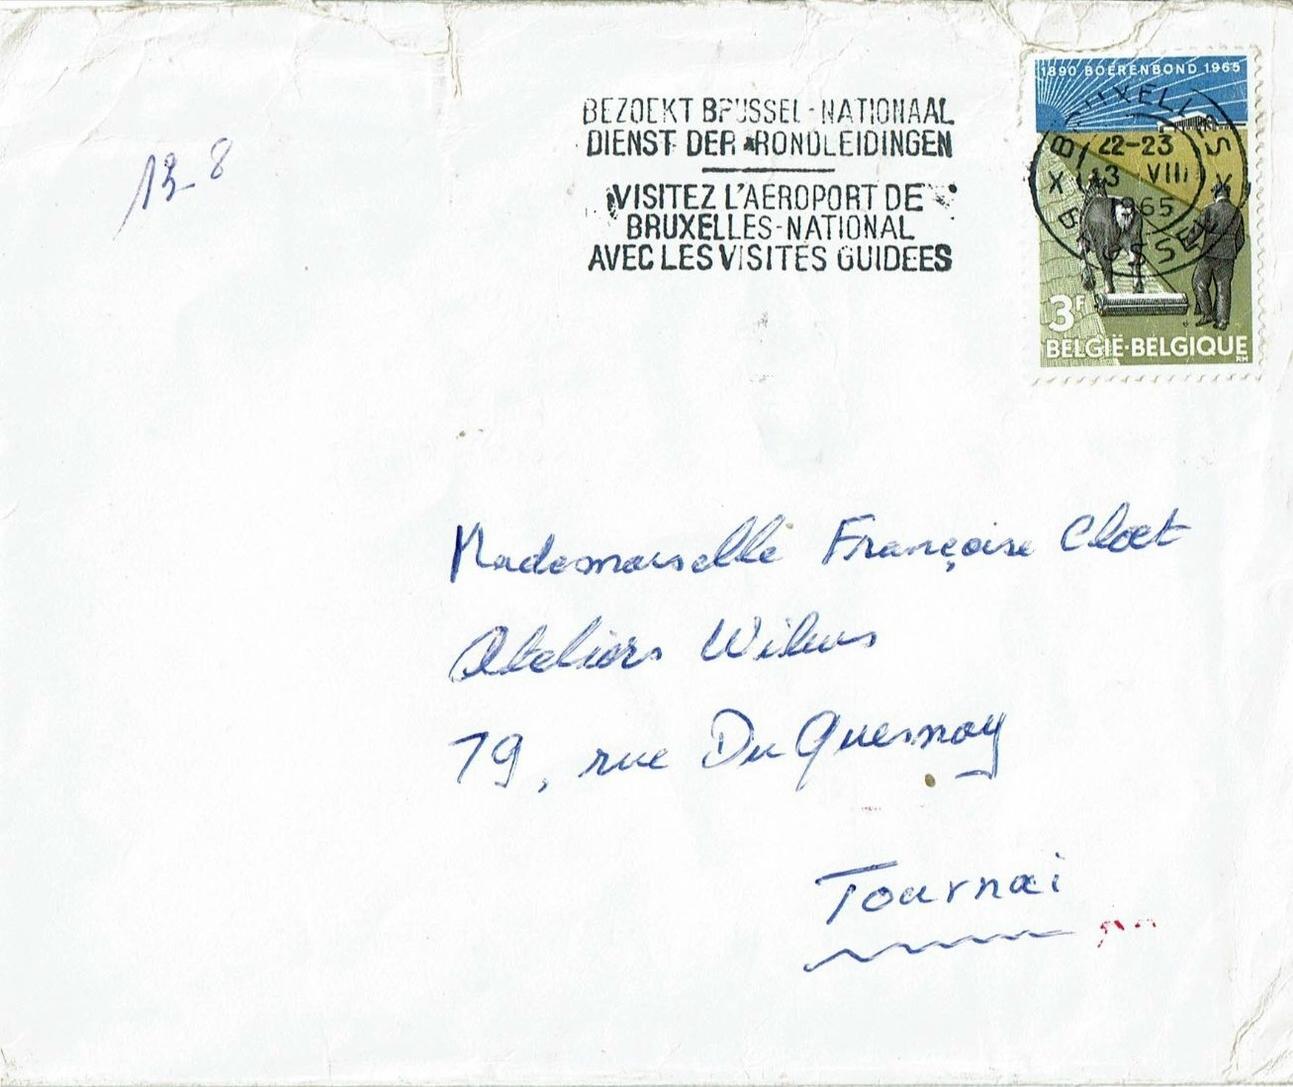 13-8
BEZOEKT BRUSSEL-NATIONAAL
DIENST DER RONDLEIDINGEN
VISITEZ L'AEROPORT DE
BRUXELLES-NATIONAL
AVEC LES VISITES GUIDEES
1890 BOERENBOND 1965
BRUXELLES X
22-23
13 VIII
1965
X BRUSSEL
3F
BELGIË·BELGIQUE
Mademoiselle Françoise Cloet
Ateliers Wilms
79, rue Du Quesnoy
Tournai